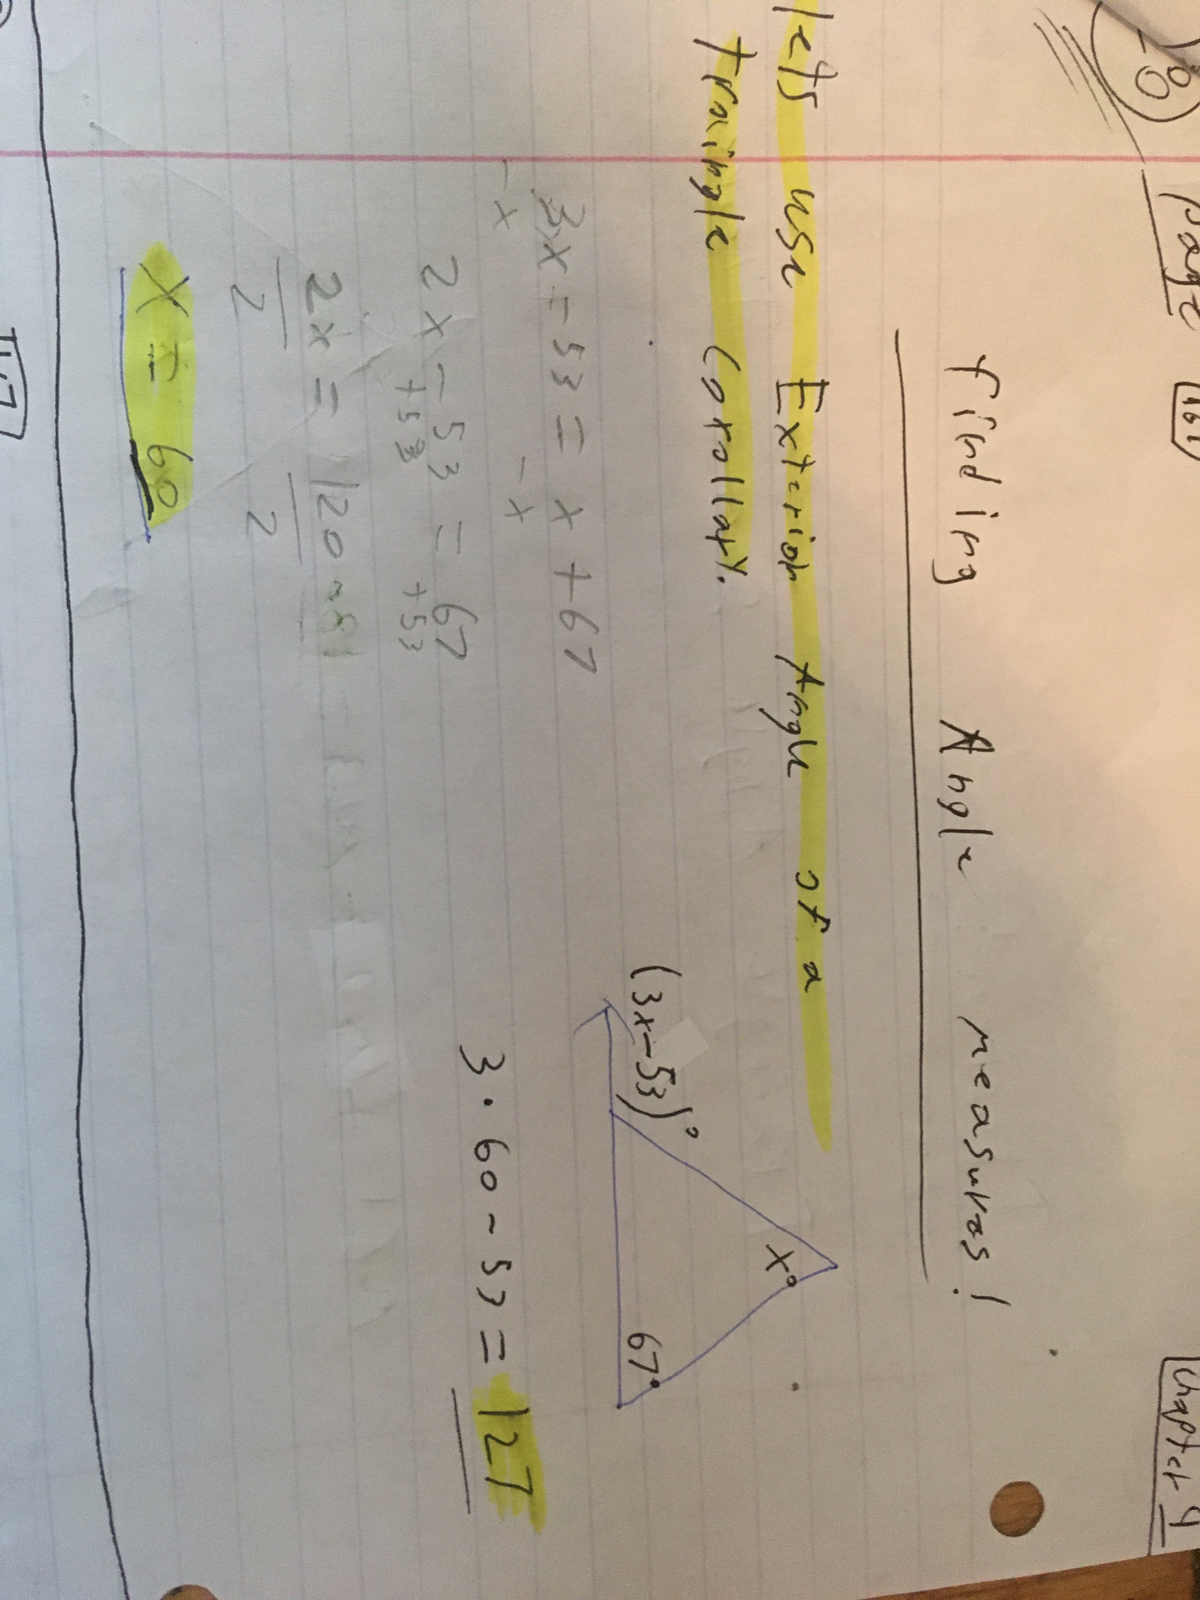 page 161
Chapter 4
finding Angle measures!
lets use Exterior Angle of a
traingle Corollary.
3x - 53 = x + 67
-x -x
2x - 53 = 67
+53 +53
2x = 120
2 2
x = 60
(3x-53)°
x°
67°
3 · 60 - 53 = 127